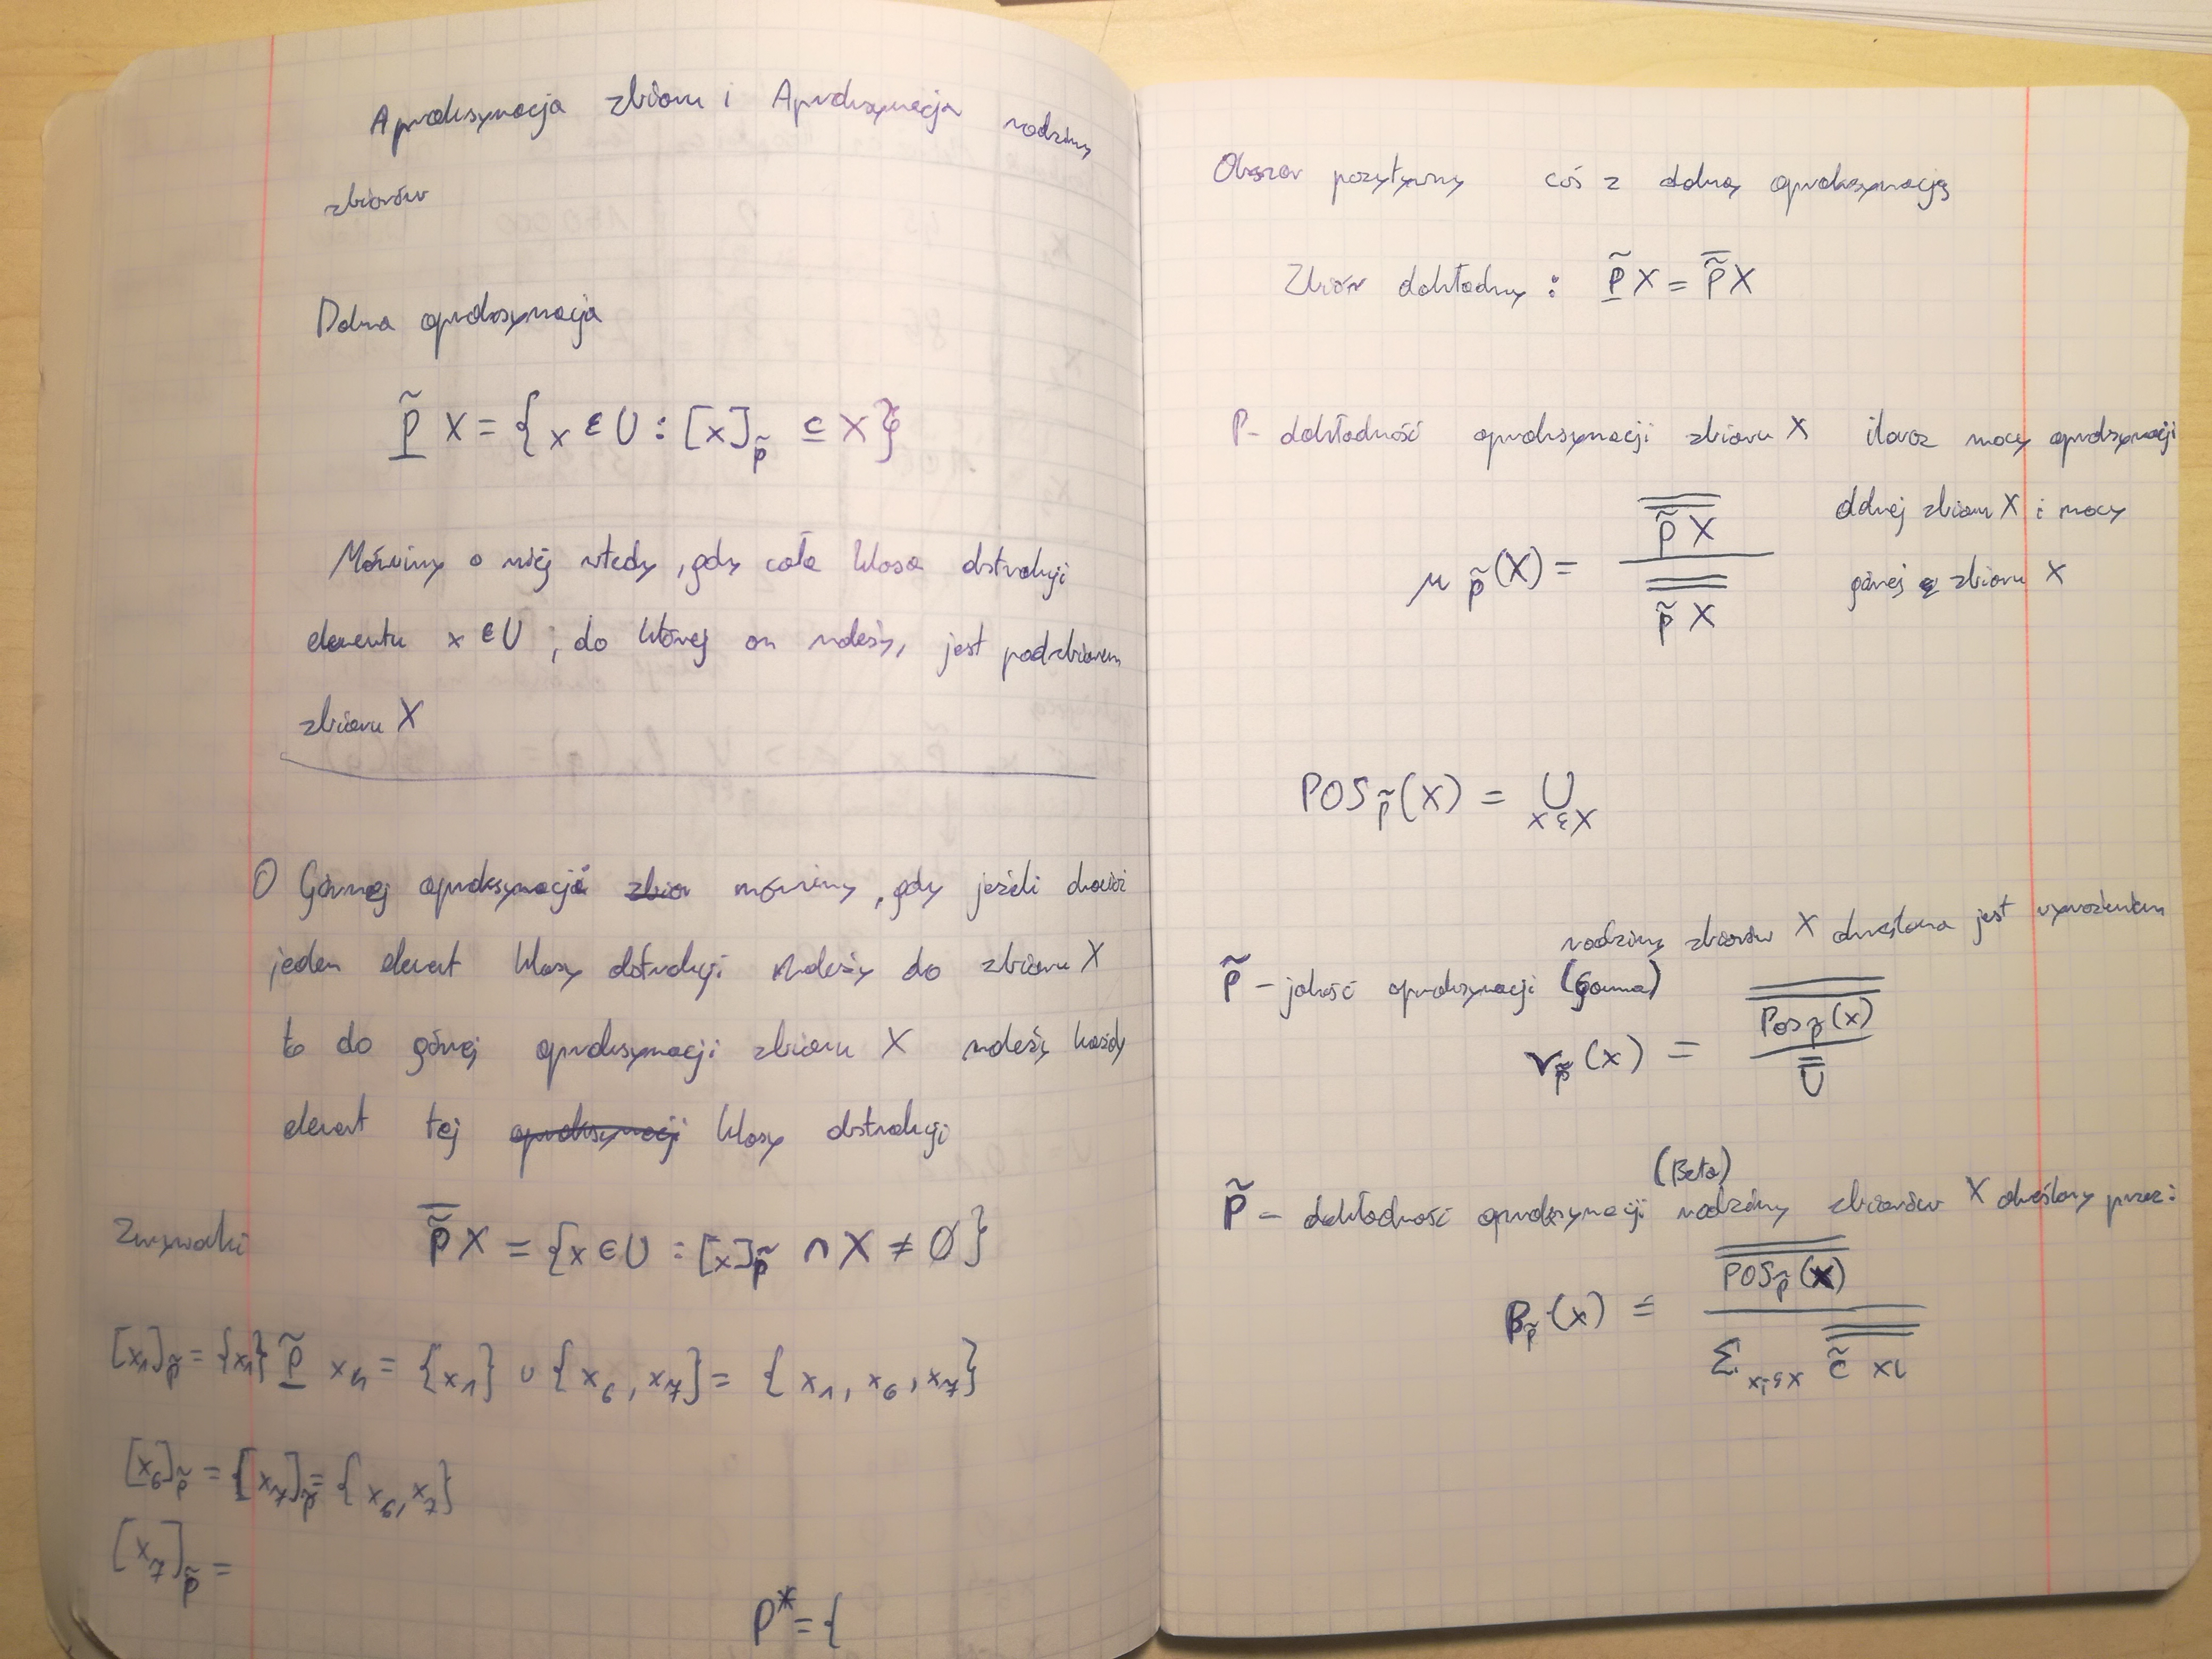 Aproksymacja zbioru i Aproksymacja rodziny
zbiorów
Dolna aproksymacja
P̲̃ X = { x ∈ U : [x]_P̃ ⊆ X }
Mówimy o niej wtedy, gdy cała klasa abstrakcji
elementu x ∈ U, do której on należy, jest podzbiorem
zbioru X
O Górnej aproksymacji zbior mówimy, gdy jeżeli chociaż
jeden element klasy abstrakcji należy do zbioru X
to do górnej aproksymacji zbioru X należy każdy
element tej aproksymacji klasy abstrakcji
P̃̅ X = {x ∈ U : [x]_P̃ ∩ X ≠ ∅}
[x₁]_P̃ = {x₁} P̲̃ x₄ = {x₁} ∪ {x₆, x₇} = {x₁, x₆, x₇}
[x₆]_P̃ = [x₇]_P̃ = {x₆, x₇}
[x₇]_P̃ =
P* = {
Obszar pozytywny coś z dolną aproksymacją
Zbiór dokładny : P̲̃ X = P̃̅ X
P - dokładność aproksymacji zbioru X iloraz mocy aproksymacji
dolnej zbioru X i mocy
górnej zbioru X
μ_P̃(X) = P̃ X / P̃ X
POS_P̃(X) = ∪ x∈X
rodziny zbiorów X określona jest wyrażeniem
P̃ - jakość aproksymacji (Gamma)
γ_P̃(x) = Pos_P̃(x) / U
(Beta)
P̃ - dokładność aproksymacji rodziny zbiorów X określony przez:
β_P̃(x) = POS_P̃(X) / Σ_xi∈X c̃ xi